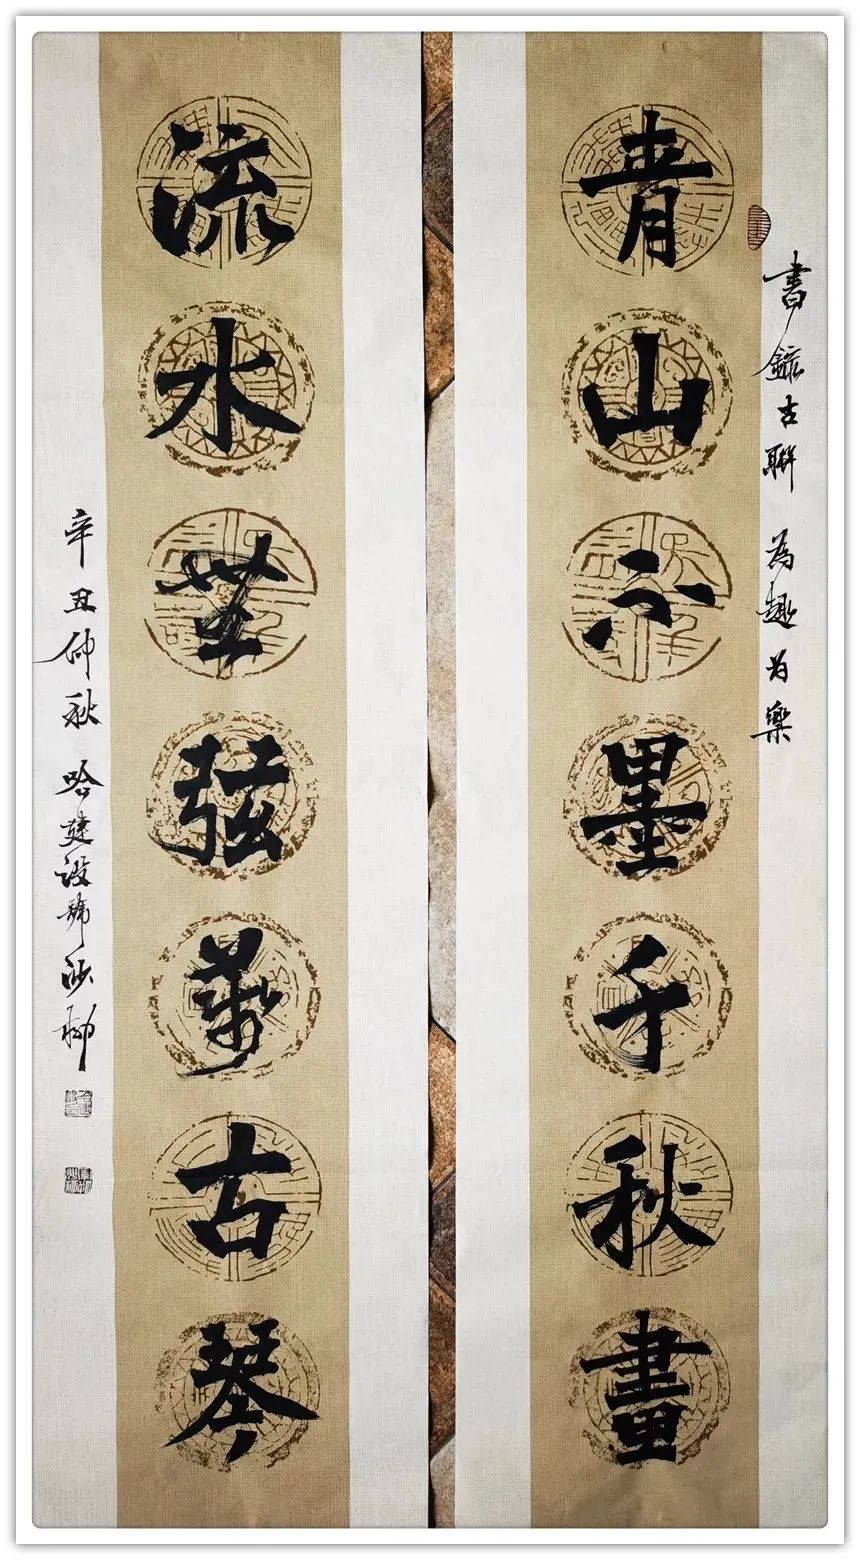 書錄古聯 為趣为樂
青山不墨千秋畫
流水無弦萬古琴
辛丑仲秋 哈建设號沙柳